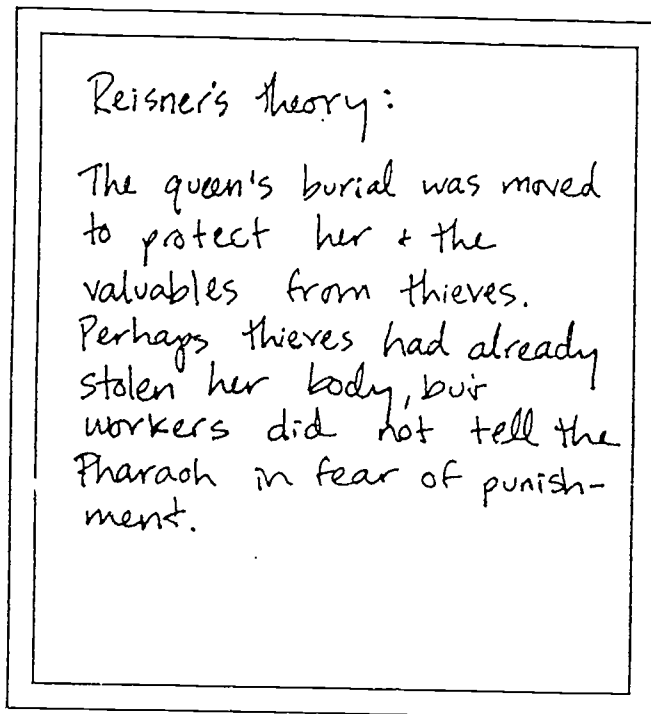 Reisner's theory:
The queen's burial was moved
to protect her + the
valuables from thieves.
Perhaps thieves had already
stolen her body, but
workers did not tell the
Pharaoh in fear of punish-
ment.